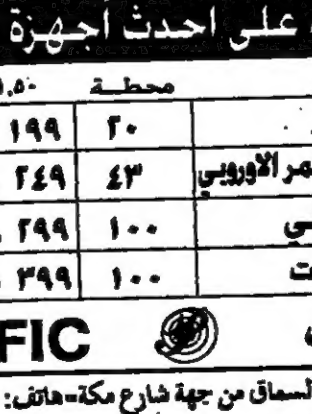 على احدث أجهزة
محطة
٢٠ ١٩٩
الاوروبي ٤٣ ٢٤٩
١٠٠ ٢٩٩
١٠٠ ٣٩٩
FIC
السماق من جهة شارع مكة-هاتف: